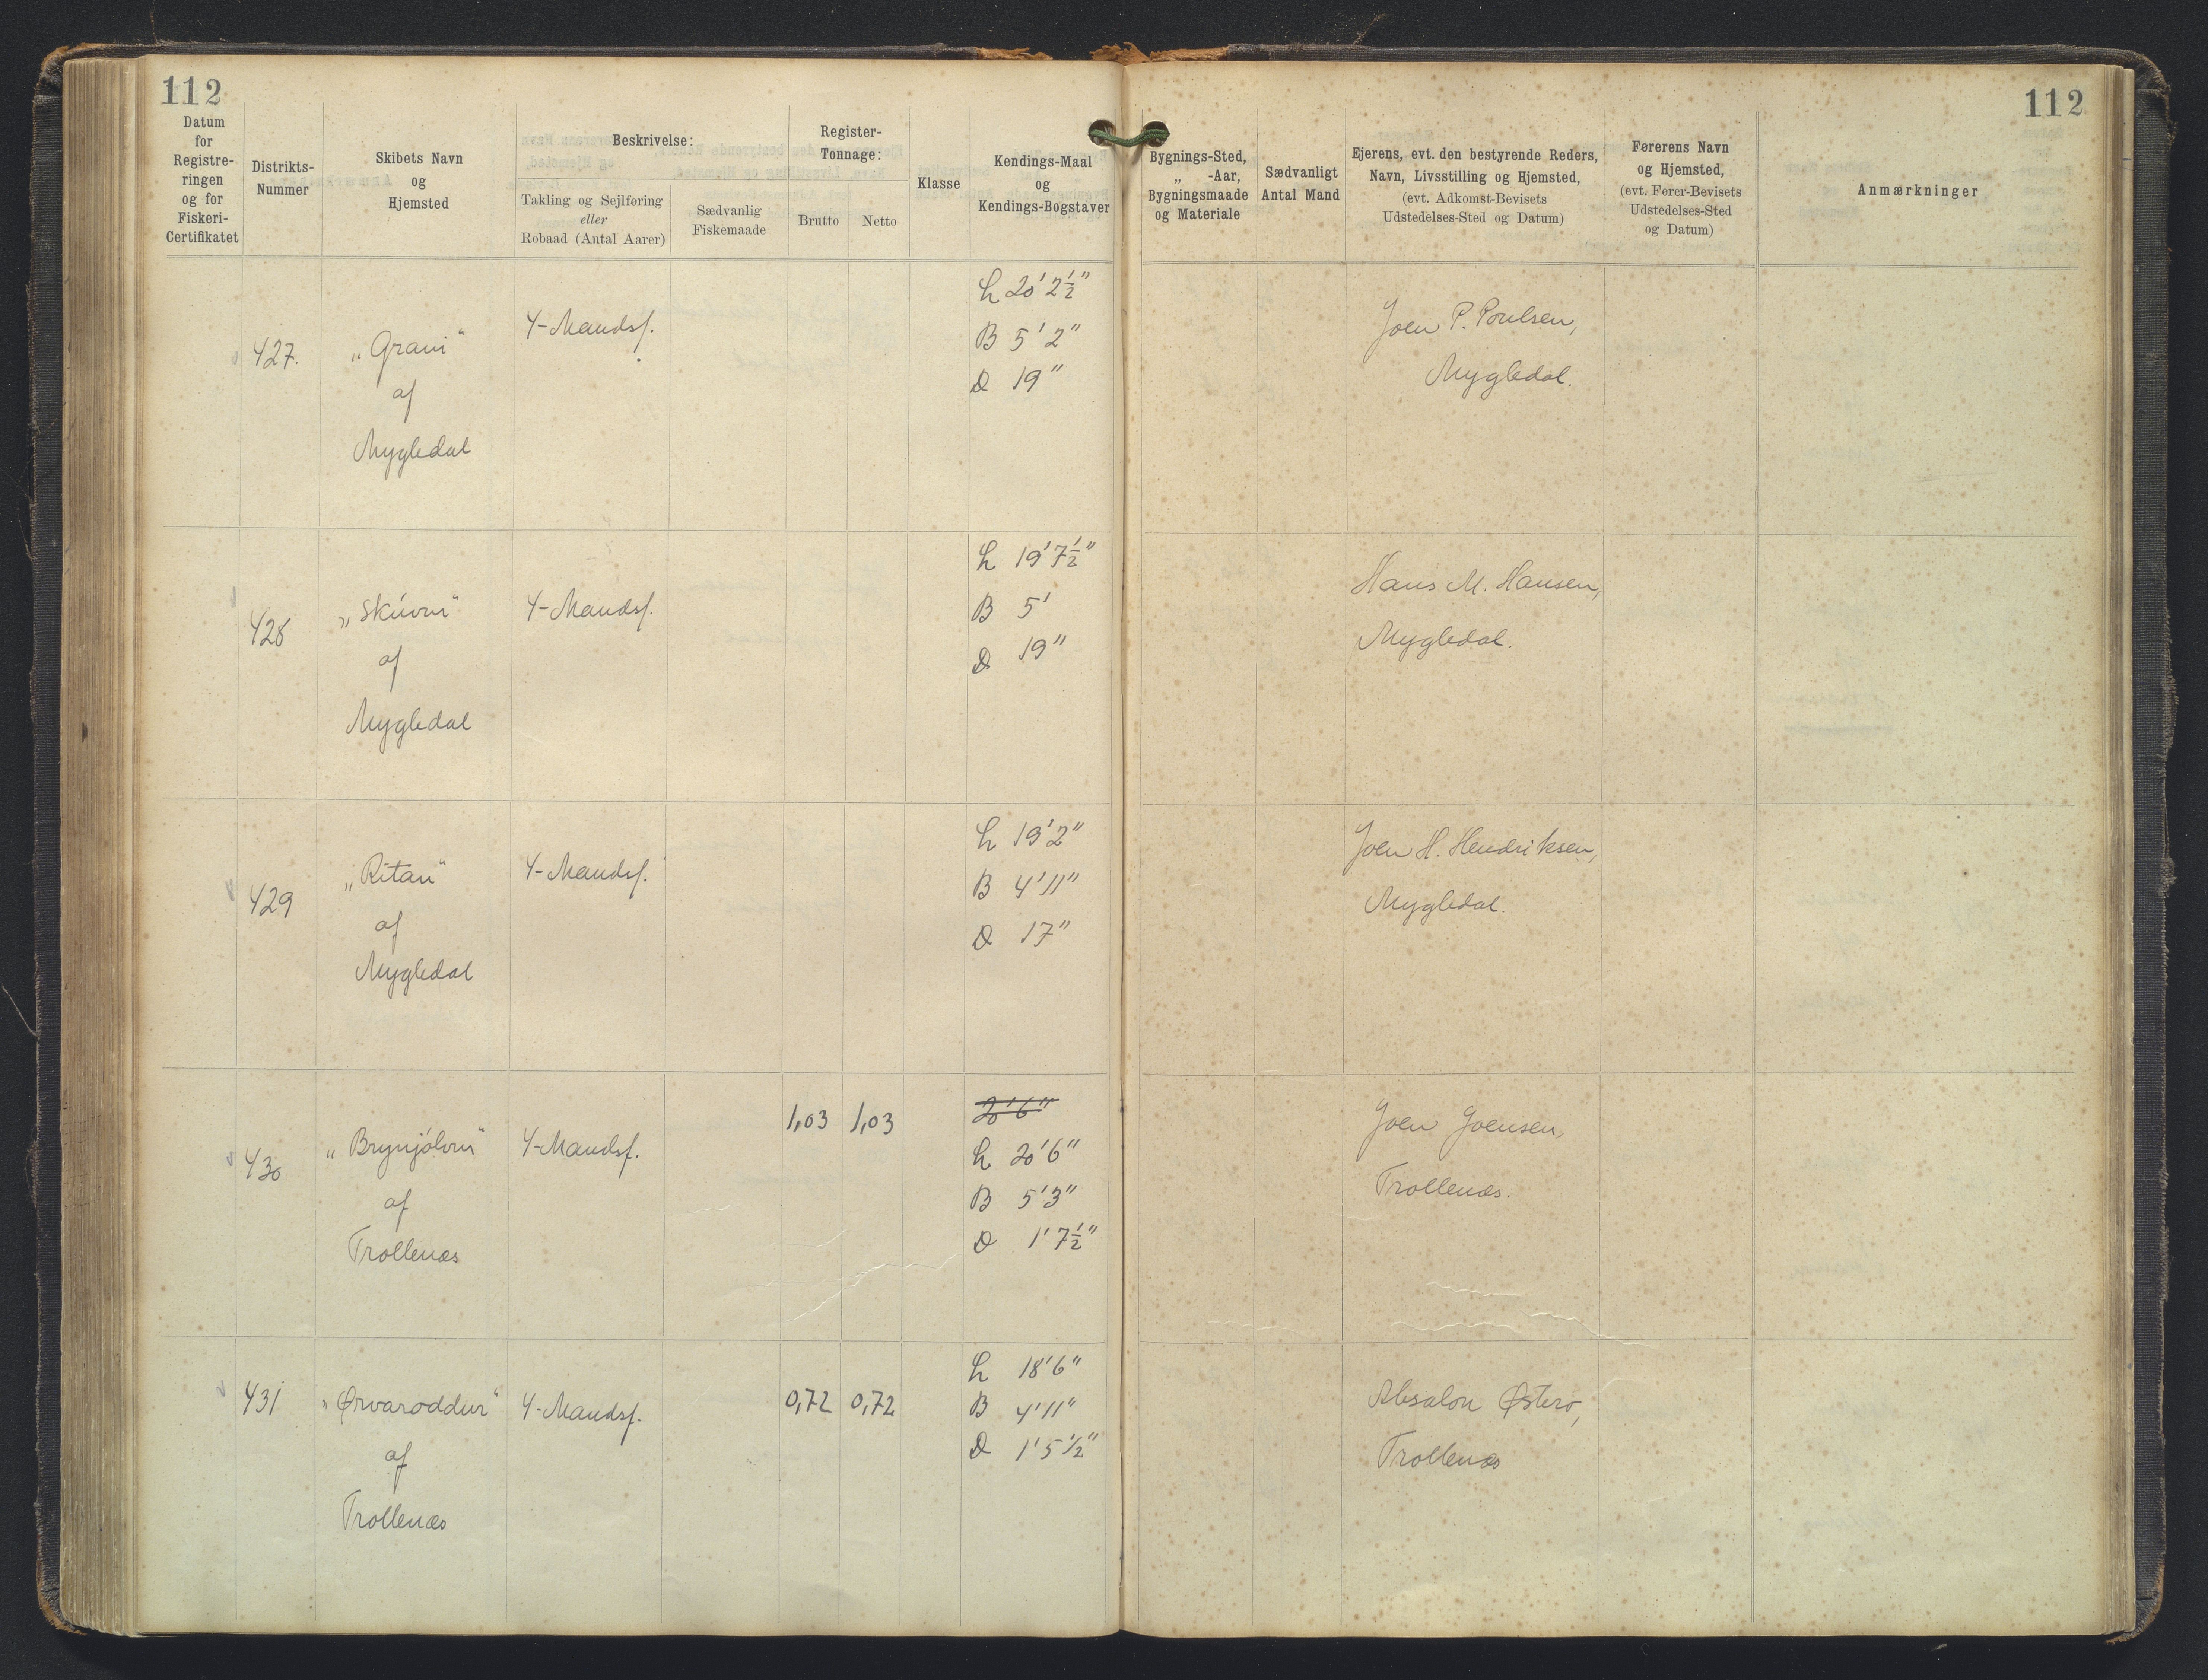 112
112
Datum
for
Registre-
ringen
og for
Fiskeri-
Certifikatet
Distrikts-
Nummer
Skibets Navn
og
Hjemsted
Beskrivelse:
Takling og Sejlføring
eller
Robaad (Antal Aarer)
Sædvanlig
Fiskemaade
Register-
Tonnage:
Brutto
Netto
Klasse
Kendings-Maal
og
Kendings-Bogstaver
Bygnings-Sted,
„ -Aar,
Bygningsmaade
og Materiale
Sædvanligt
Antal Mand
Ejerens, evt. den bestyrende Reders,
Navn, Livsstilling og Hjemsted,
(evt. Adkomst-Bevisets
Udstedelses-Sted og Datum)
Førerens Navn
og Hjemsted,
(evt. Fører-Bevisets
Udstedelses-Sted
og Datum)
Anmærkninger
427.
„Grani“
af
Mygledal
4-Mandsf.
L 20' 2½"
B 5' 2"
D 19"
Joen P. Poulsen,
Mygledal.
428
„Skúvur“
af
Mygledal
4-Mandsf.
L 19' 7½"
B 5'
D 19"
Hans M. Hansen,
Mygledal.
429
„Ritan“
af
Mygledal
4-Mandsf.
L 19' 2"
B 4' 11"
D 17"
Joen H. Hendriksen,
Mygledal.
430
„Brynjólvur“
af
Trollenæs
4-Mandsf.
1,03
1,03
20' 6"
L 20' 6"
B 5' 3"
D 1' 7½"
Joen Joensen,
Trollenæs.
431
„Ørvaroddur“
af
Trollenæs
4-Mandsf.
0,72
0,72
L 18' 6"
B 4' 11"
D 1' 5½"
Absalon Østerø,
Trollenæs